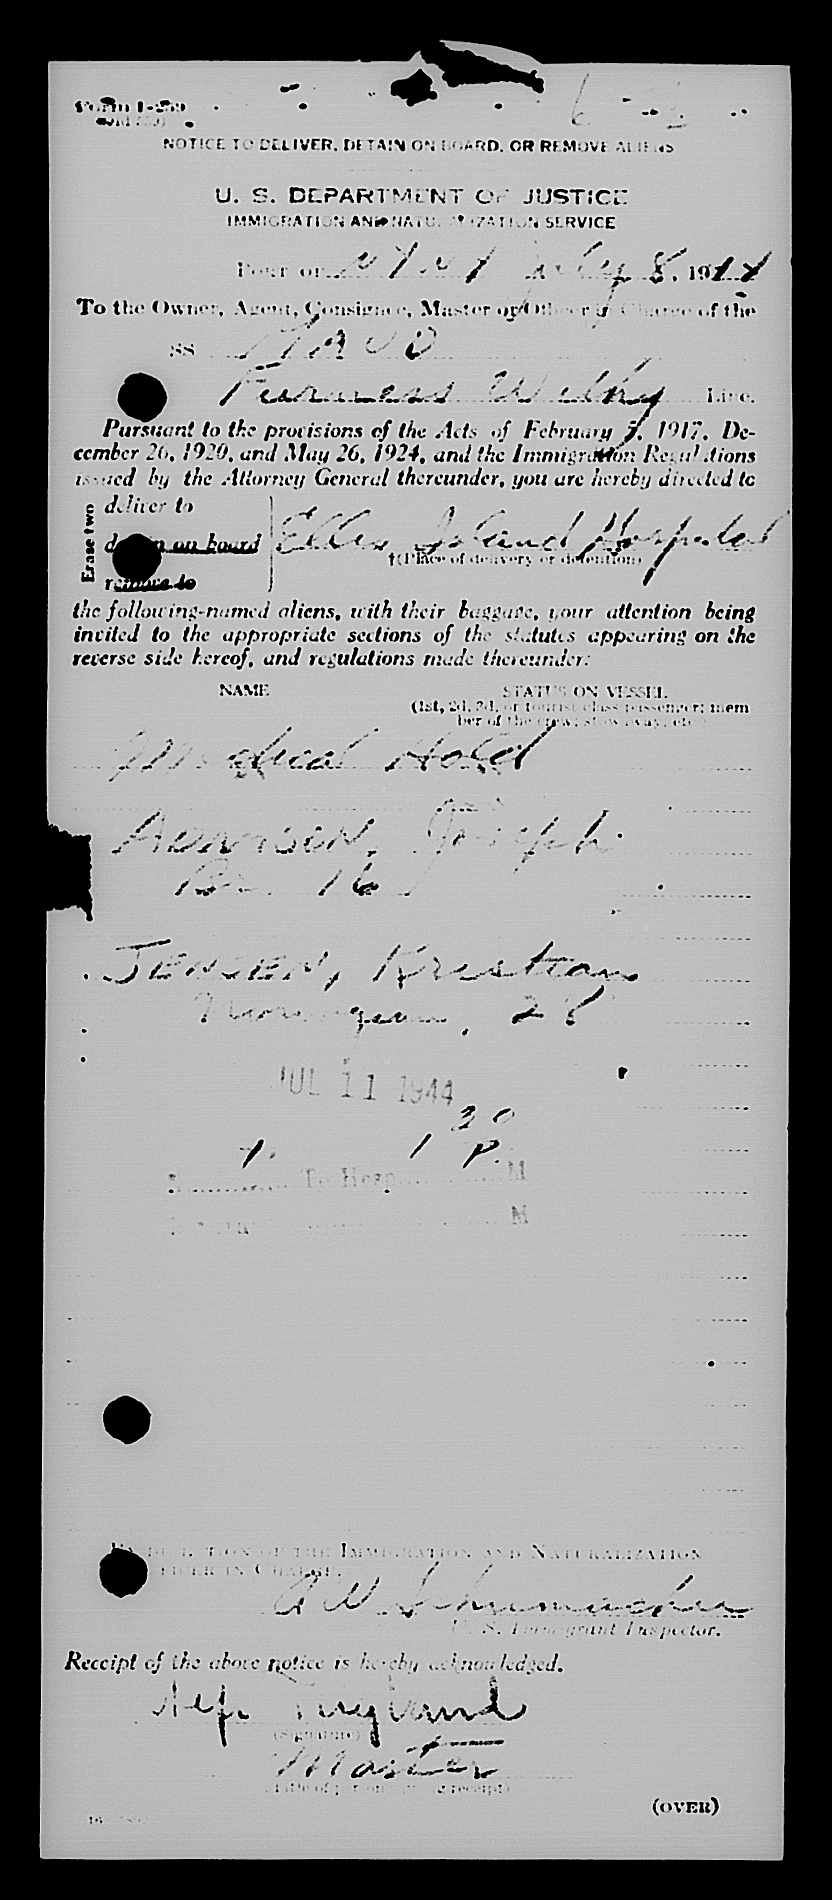 Form I-259
NOTICE TO DELIVER, DETAIN ON BOARD, OR REMOVE ALIENS
U. S. DEPARTMENT OF JUSTICE
IMMIGRATION AND NATURALIZATION SERVICE
Port of N Y N Y July 8, 1944
To the Owner, Agent, Consignee, Master or Officer in Charge of the
SS
Furness Withy Line.
Pursuant to the provisions of the Acts of February 5, 1917, De-
cember 26, 1920, and May 26, 1924, and the Immigration Regulations
issued by the Attorney General thereunder, you are hereby directed to
Erase two
deliver to
detain on board Ellis Island Hospital
†(Place of delivery or detention)
remove to
the following-named aliens, with their baggage, your attention being
invited to the appropriate sections of the statutes appearing on the
reverse side hereof, and regulations made thereunder:
NAME STATUS ON VESSEL
(1st, 2d, 3d, or tourist class passenger; mem
ber of the crew; stowaway, etc.)
Medical Hold
Joseph
Br. 16
JENSEN, Kristian
Norwegian, 28
JUL 11 1944
1 30 P
To Hosp. M
M
BY DIRECTION OF THE IMMIGRATION AND NATURALIZATION
OFFICER IN CHARGE.
A W Schumacher
U. S. Immigrant Inspector.
Receipt of the above notice is hereby acknowledged.
(Signature)
Master
(Title of person giving receipt)
(OVER)